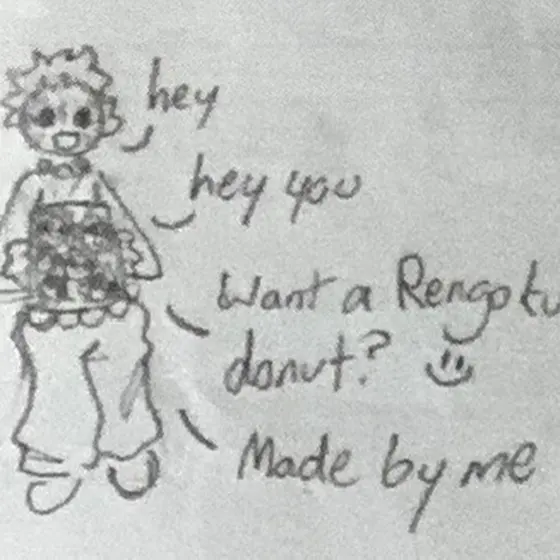 hey
hey you
Want a Rengoku
donut? :)
Made by me